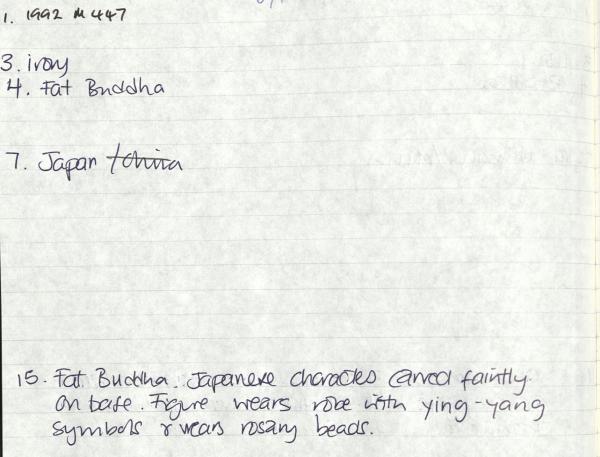 1. 1992 M 447
3. ivory
4. Fat Buddha
7. Japan / China
15. Fat Buddha. Japanese characters carved faintly
on base. Figure wears robe with ying-yang
symbols & wears rosary beads.